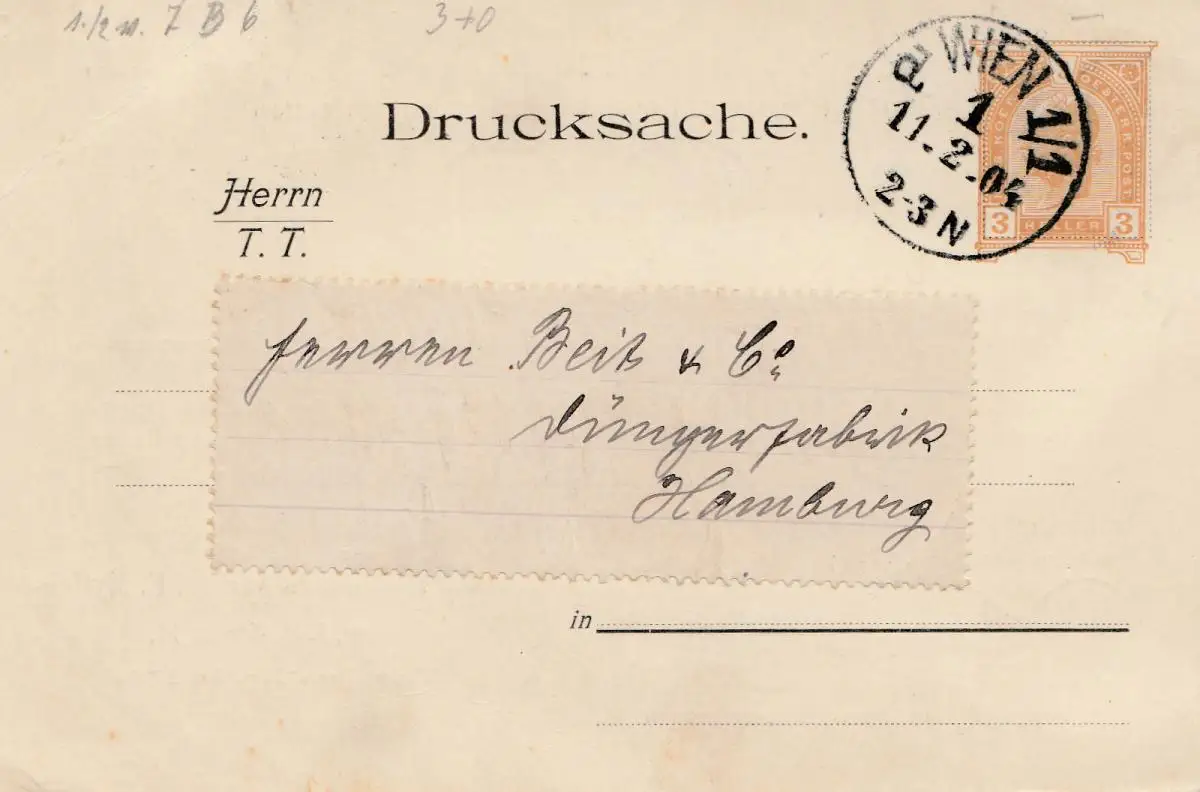 3+0
Drucksache.
WIEN 1/1
1
11.2.04
2-3 N
3 HELLER 3
Herrn
T. T.
Herren Beit & Co
Düngerfabrik
Hamburg
in